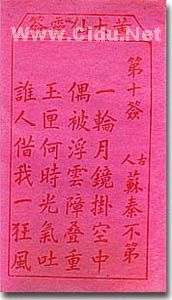 www.Cidu.Net
黃大仙靈簽
第十簽
古人蘇秦不第
一輪月鏡掛空中
偶被浮雲障叠重
玉匣何時光氣吐
誰人借我一狂風